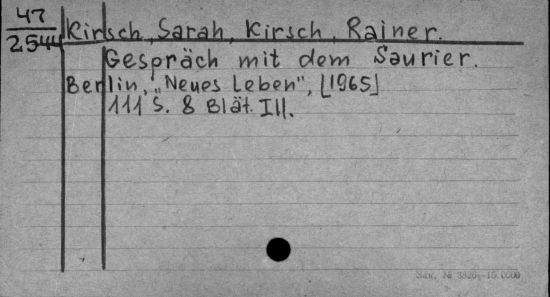 47
2544
Kirsch, Sarah, Kirsch, Rainer.
Gespräch mit dem Saurier.
Berlin, "Neues Leben", [1965]
111 S. 8 Blät. Ill.